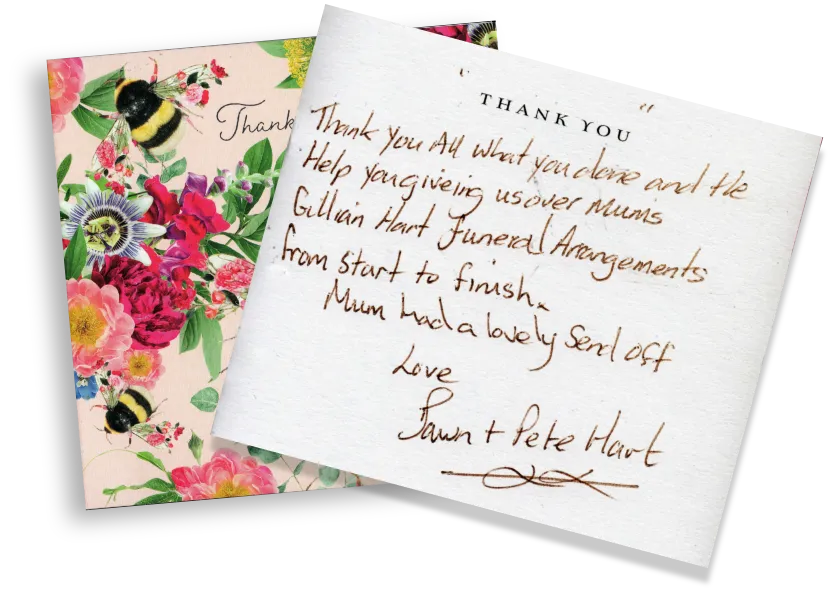 Thank
" THANK YOU "
Thank you All what you done and the
Help yougiveing us over Mums
Gillian Hart Funeral Arrangements
from start to finish.
Mum had a lovely Send off
Love
Dawn + Pete Hart